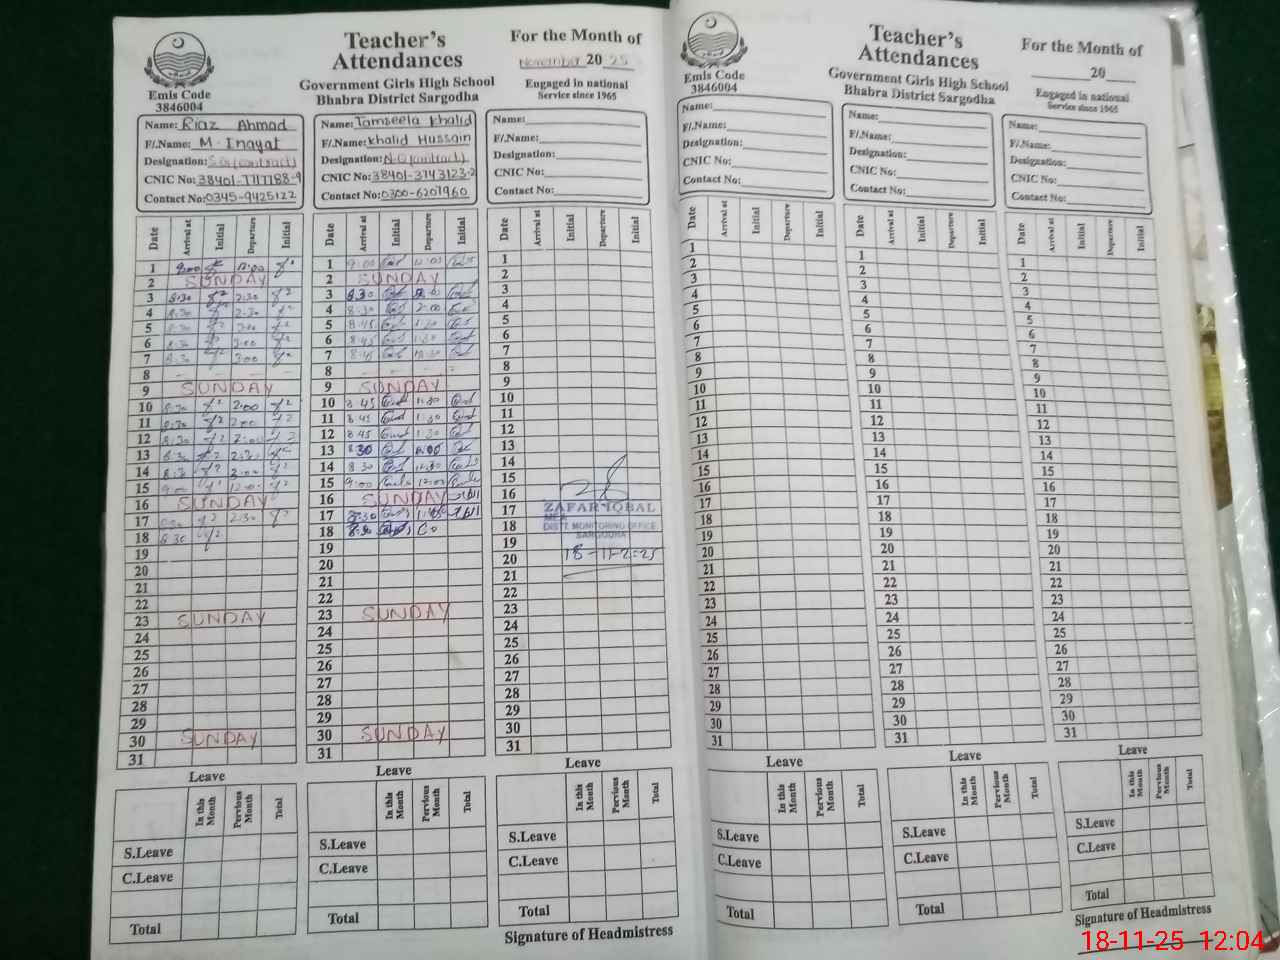 Teacher's
Attendances
For the Month of
November 20 25
Emis Code
3846004
Government Girls High School
Bhabra District Sargodha
Engaged in national
Service since 1965
Name: Riaz Ahmad
F/.Name: M. Inayat
Designation:
CNIC No: 38401-7717788-9
Contact No: 0345-9425122
Name: Tamseela Khalid
F/.Name: Khalid Hussain
Designation: N.Q (contract)
CNIC No: 38401-3743123-2
Contact No: 0300-6201960
Name:
F/.Name:
Designation:
CNIC No:
Contact No:
Date Arrival at Initial Departure Initial
1 9:00 12:00
2 SUNDAY
3 8:30 2:30
4 8:30 2:30
5 8:30
6 8:30 2:00
7 8:30 2:00
8
9 SUNDAY
10 8:30 2:00
11 8:30 2:00
12 8:30 2:00
13 8:30 2:30
14 8:30 2:00
15 9:00 12:00
16 SUNDAY
17 2:30
18 8:30
19
20
21
22
23 SUNDAY
24
25
26
27
28
29
30 SUNDAY
31
Date Arrival at Initial Departure Initial
1 9:00 12:00
2 SUNDAY
3 8:30
4 8:30 2:00
5 8:45 1:30
6 8:45 1:30
7 8:45
8
9 SUNDAY
10 8:45 1:30
11 8:45 1:30
12 8:45 1:30
13 8:30
14 8:30
15 9:00 12:00
16 SUNDAY
17 8:30
18 8:30
19
20
21
22
23 SUNDAY
24
25
26
27
28
29
30 SUNDAY
31
Date Arrival at Initial Departure Initial
1
2
3
4
5
6
7
8
9
10
11
12
13
14
15
16
17
18
19
20
21
22
23
24
25
26
27
28
29
30
31
ZAFAR IQBAL
MEA
DISTT. MONITORING OFFICE
SARGODHA
18-11-2025
Leave
In this Month Pervious Month Total
S.Leave
C.Leave
Total
Leave
In this Month Pervious Month Total
S.Leave
C.Leave
Total
Leave
In this Month Pervious Month Total
S.Leave
C.Leave
Total
Signature of Headmistress
Teacher's
Attendances
For the Month of
20
Emis Code
3846004
Government Girls High School
Bhabra District Sargodha
Engaged in national
Service since 1965
Name:
F/.Name:
Designation:
CNIC No:
Contact No:
Name:
F/.Name:
Designation:
CNIC No:
Contact No:
Name:
F/.Name:
Designation:
CNIC No:
Contact No:
Date Arrival at Initial Departure Initial
1
2
3
4
5
6
7
8
9
10
11
12
13
14
15
16
17
18
19
20
21
22
23
24
25
26
27
28
29
30
31
Date Arrival at Initial Departure Initial
1
2
3
4
5
6
7
8
9
10
11
12
13
14
15
16
17
18
19
20
21
22
23
24
25
26
27
28
29
30
31
Date Arrival at Initial Departure Initial
1
2
3
4
5
6
7
8
9
10
11
12
13
14
15
16
17
18
19
20
21
22
23
24
25
26
27
28
29
30
31
Leave
In this Month Pervious Month Total
S.Leave
C.Leave
Total
Leave
In this Month Pervious Month Total
S.Leave
C.Leave
Total
Leave
In this Month Pervious Month Total
S.Leave
C.Leave
Total
Signature of Headmistress
18-11-25 12:04